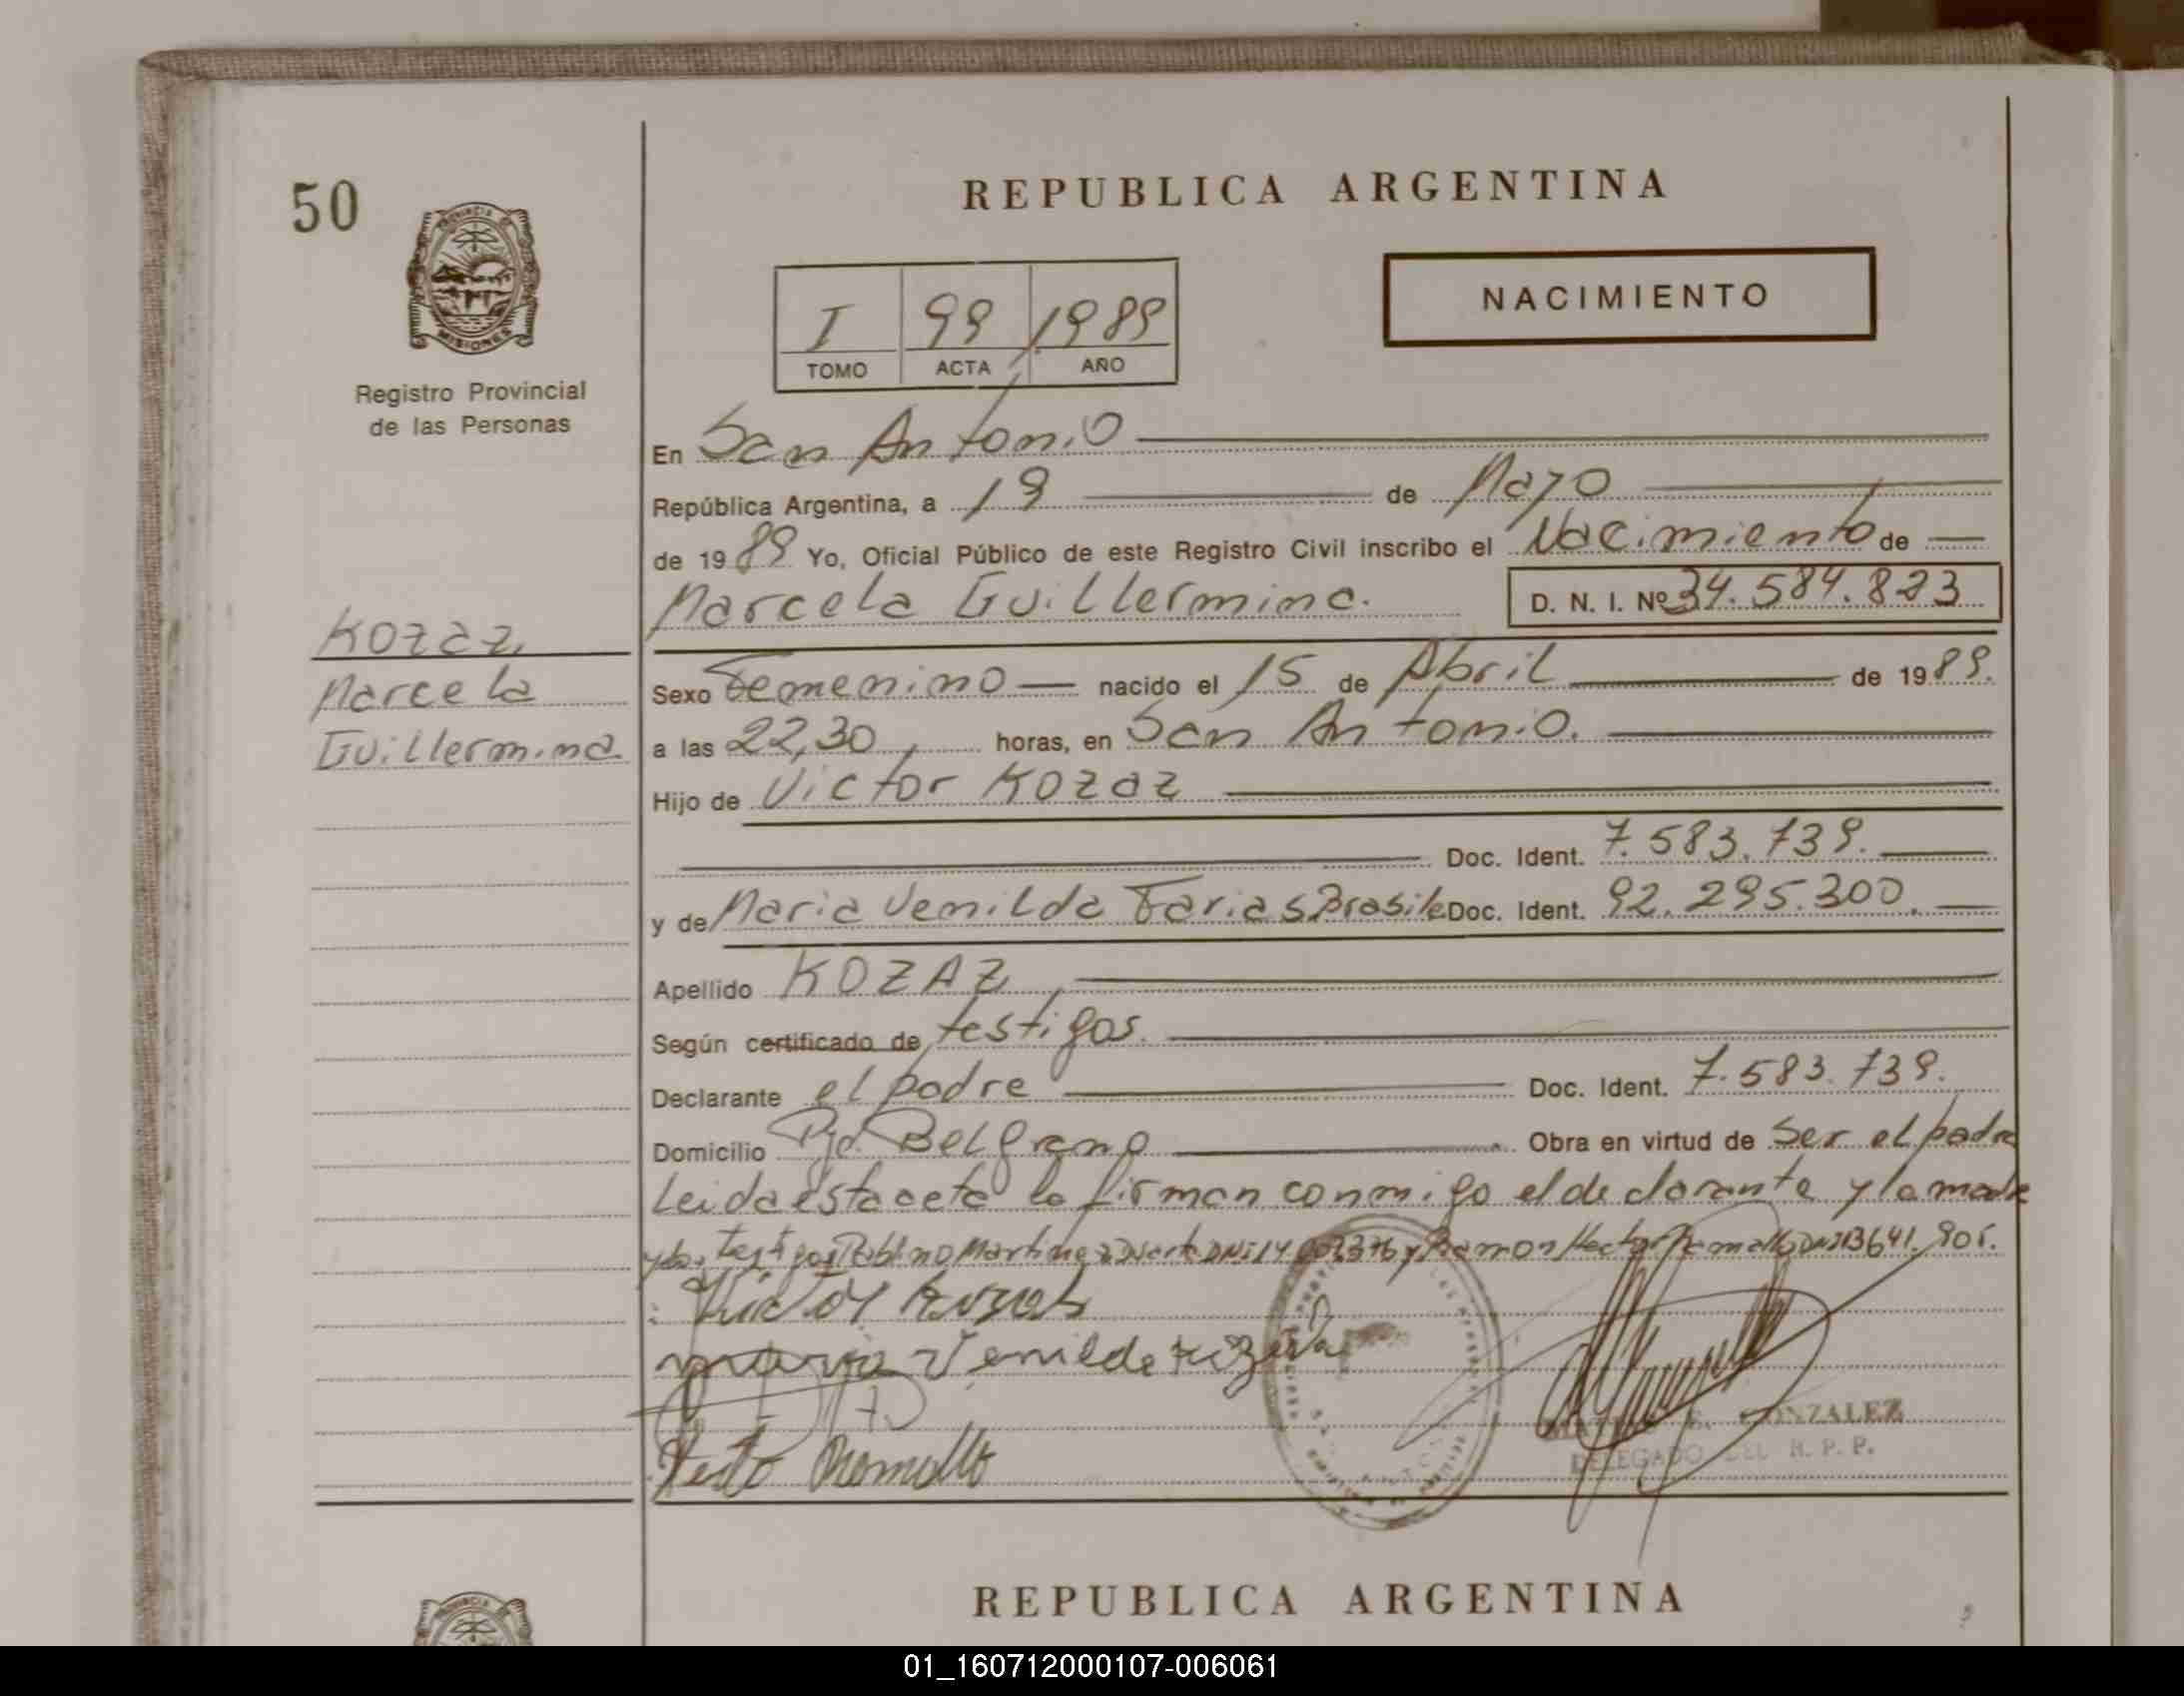 50
REPUBLICA ARGENTINA
PROVINCIA DE
MISIONES
Registro Provincial
de las Personas
NACIMIENTO
I 99 1989
TOMO ACTA AÑO
En San Antonio
República Argentina, a 19 de Mayo
de 1989 Yo, Oficial Público de este Registro Civil inscribo el Nacimiento de
Marcela Guillermina. D. N. I. Nº 34.584.823
Kozaz,
Marcela
Guillermina
Sexo Femenino nacido el 15 de Abril de 1989.
a las 22,30 horas, en San Antonio.
Hijo de Victor Kozaz
Doc. Ident. 7.583.739.
y de Maria Venilda Farias Brasile Doc. Ident. 92.295.300.
Apellido KOZAZ
Según certificado de testigos.
Declarante el padre Doc. Ident. 7.583.739.
Domicilio Pje. Belgrano Obra en virtud de Ser el padre
Leida esta acta la firman conmigo el declarante y la madre
y los testigos Martinez Duarte DNI 14. y Ramon Hector Romallo DNI 13641.905.
Victor
maria Venilde
GONZALEZ
DELEGADO DEL R. P. P.
REPUBLICA ARGENTINA
01_160712000107-006061